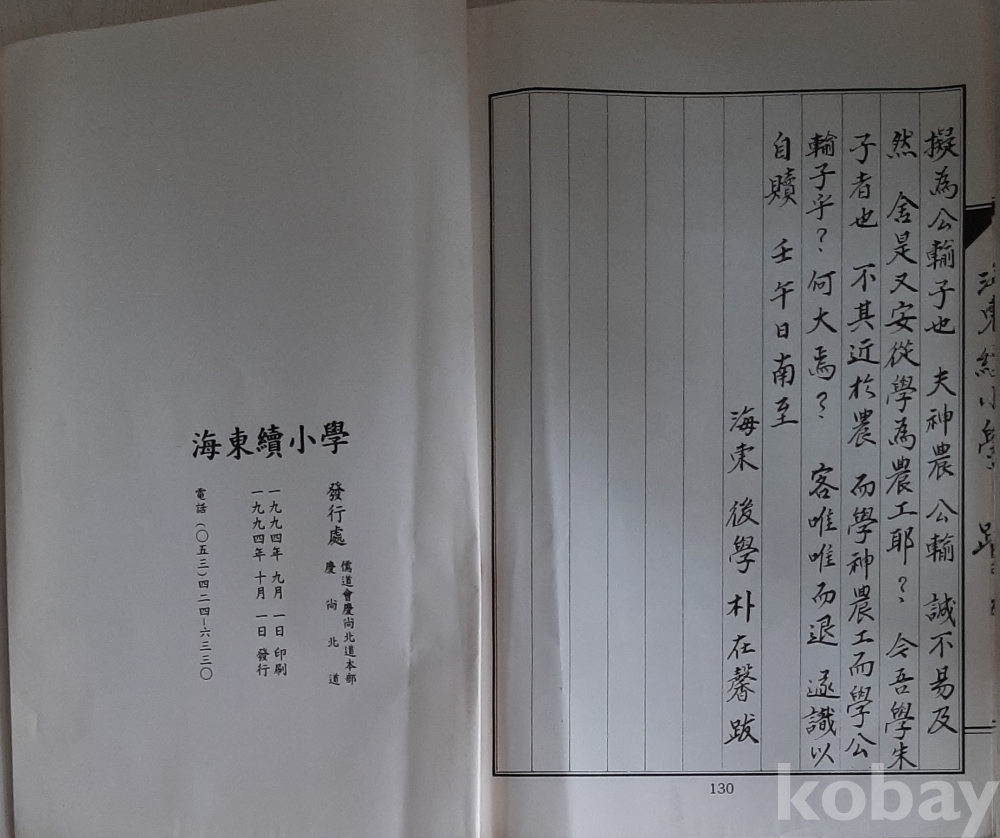 擬為公輸子也 夫神農公輸 誠不易及
然 舍是又安從學為農工耶? 今吾學朱
子者也 不其近於農 而學神農工而學公
輸子乎? 何大焉? 客唯唯而退 遂識以
自贖 壬午日南至
海東 後學 朴在馨 跋
130
海東續小學 跋
海東續小學
發行處 儒道會慶尚北道本部
慶尚北道
一九九四年 九月 一日 印刷
一九九四年 十月 一日 發行
電話 (〇五三) 四二四-六三三〇
kobay